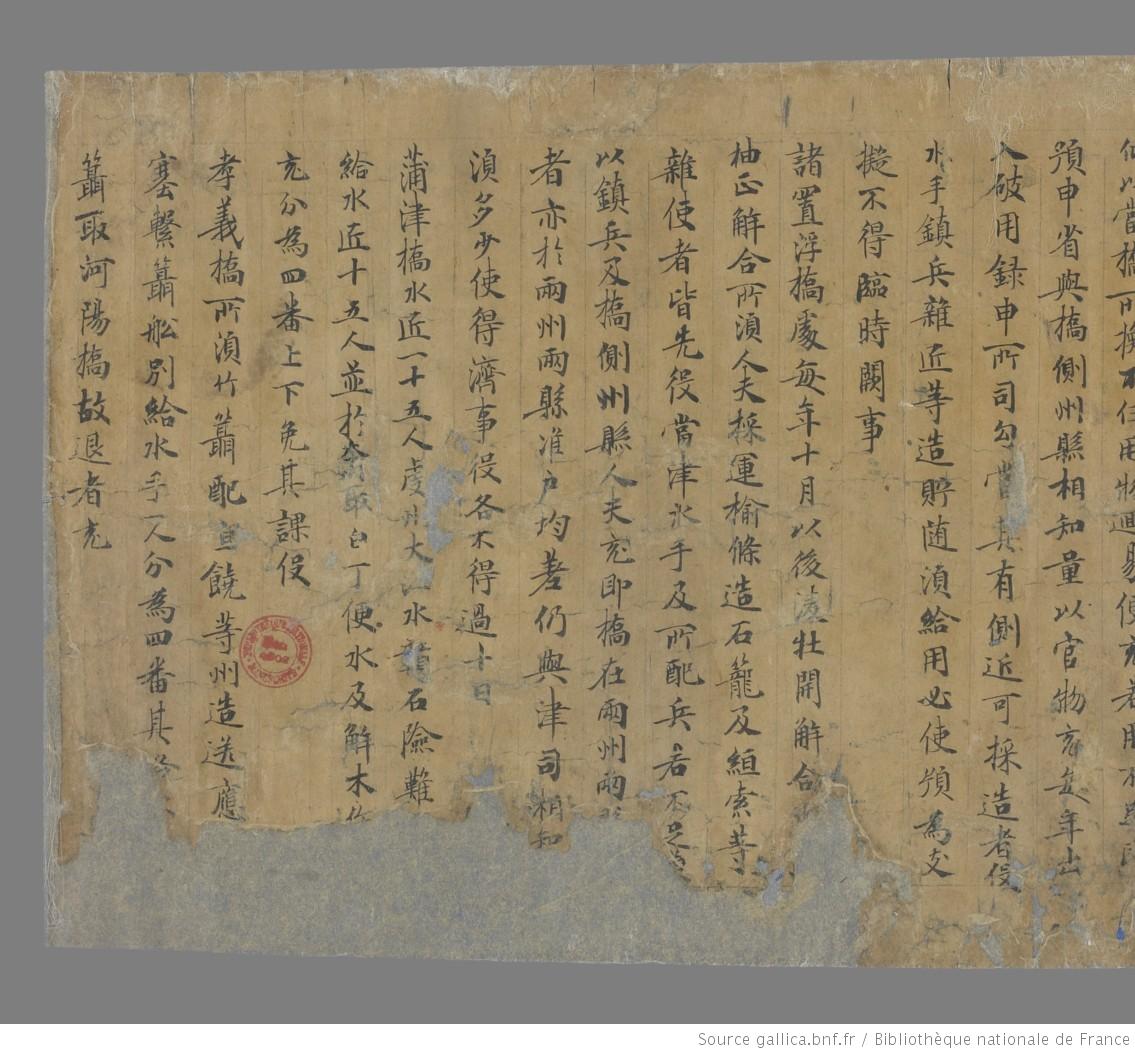 預申省與橋側州縣相知量以官物充每年出
入破用錄申所司勾當其有側近可採造者役
水手鎮兵雜匠等造貯隨須給用必使預為支
擬不得臨時闕事
諸置浮橋處每年十月以後凌牡開解合
抽正解合所須人夫採運榆條造石籠及絙索等
雜使者皆先役當津水手及所配兵若不足
以鎮兵及橋側州縣人夫充即橋在兩州兩
者亦於兩州兩縣准戶均差仍與津司相知
須多少使得濟事役各不得過十日
蒲津橋水匠一十五人虔州大江水贛石險難
給水匠十五人並於本取白丁便水及解木作
充分為四番上下免其課役
孝義橋所須竹籊配宣饒等州造送應
塞繫籊舩別給水手一人分為四番其
籊取河陽橋故退者充
Source gallica.bnf.fr / Bibliothèque nationale de France